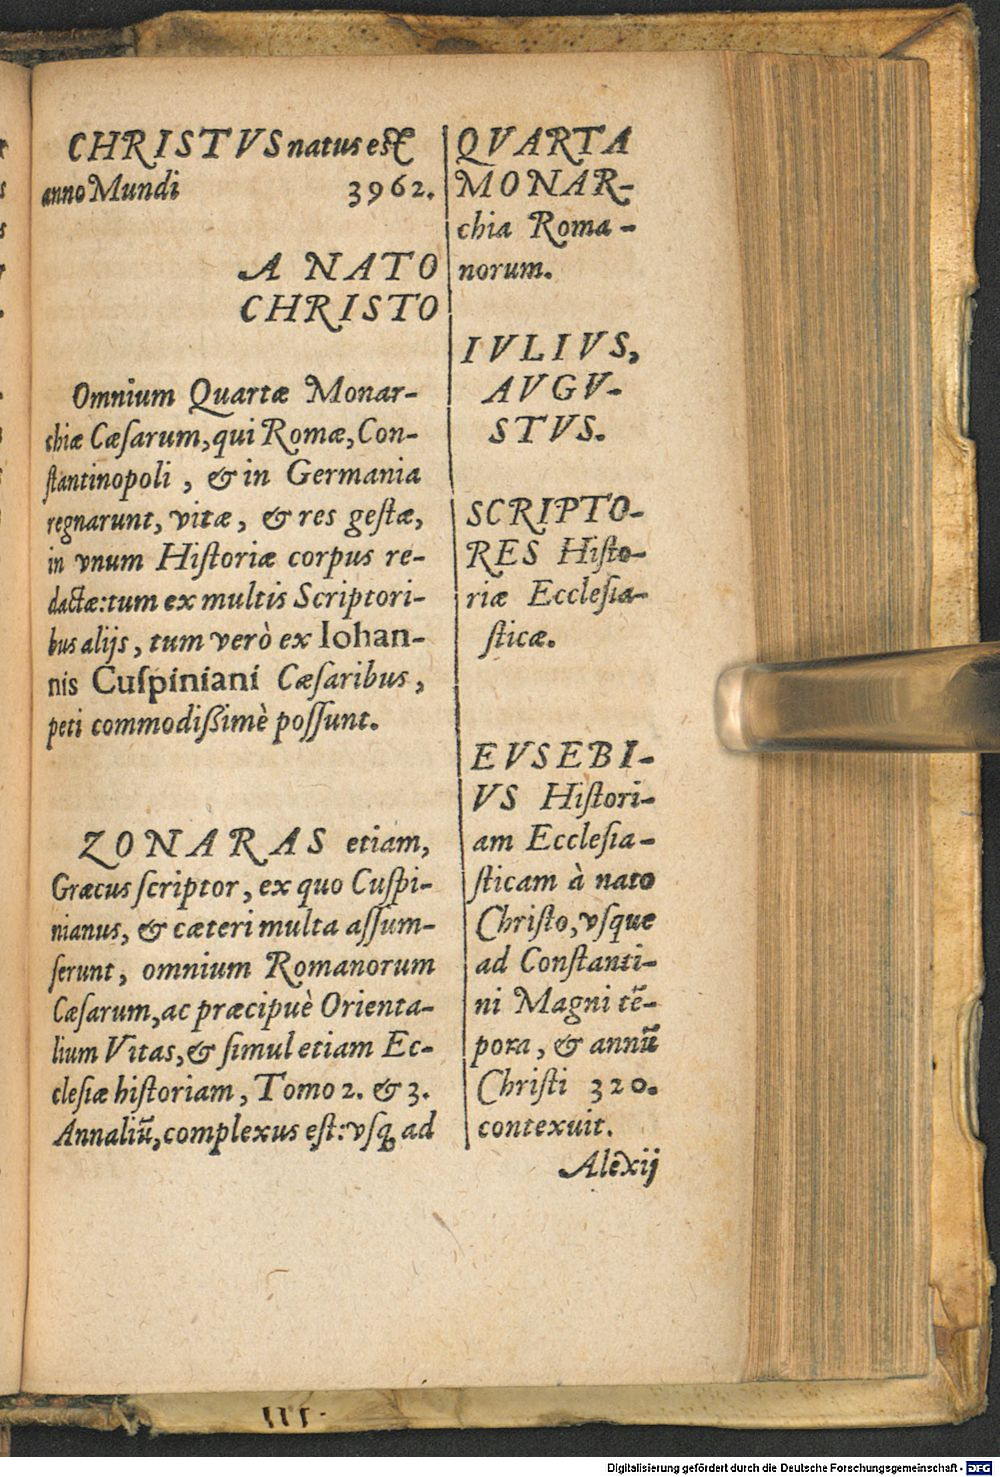 CHRISTVS natus est
anno Mundi 3962.
A NATO
CHRISTO
Omnium Quartæ Monar-
chiæ Cæsarum, qui Romæ, Con-
stantinopoli, & in Germania
regnarunt, vitæ, & res gestæ,
in vnum Historiæ corpus re-
dactæ: tum ex multis Scriptori-
bus alijs, tum verò ex Iohan-
nis Cuſpiniani Cæſaribus,
peti commodißimè poſſunt.
ZONARAS etiam,
Græcus ſcriptor, ex quo Cuſpi-
nianus, & cæteri multa aſſum-
ſerunt, omnium Romanorum
Cæſarum, ac præcipuè Orienta-
lium Vitas, & ſimul etiam Ec-
cleſiæ hiſtoriam, Tomo 2. & 3.
Annaliũ, complexus eſt: vſq; ad
QVARTA
MONAR-
chia Roma-
norum.
IVLIVS,
AVGV-
STVS.
SCRIPTO-
RES Hiſto-
riæ Eccleſia-
ſticæ.
EVSEBI-
VS Hiſtori-
am Eccleſia-
ſticam à nato
Chriſto, vſque
ad Conſtanti-
ni Magni tẽ-
pora, & annũ
Chriſti 320.
contexuit.
Alexij
Digitalisierung gefördert durch die Deutsche Forschungsgemeinschaft - DFG